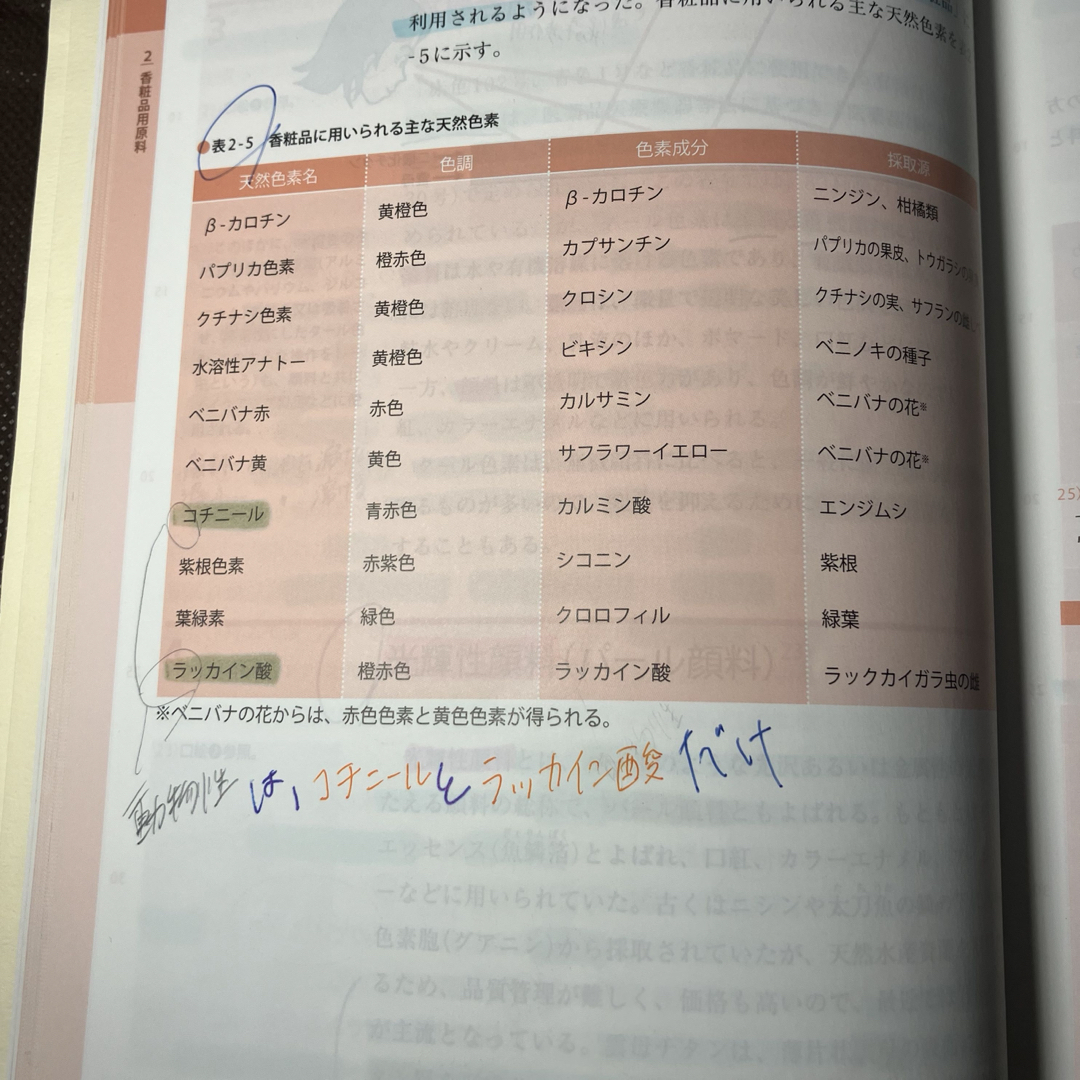 利用されるようになった。香粧品に用いられる主な天然色素を
-5に示す。
2 香粧品用原料
●表2-5 香粧品に用いられる主な天然色素
天然色素名 色調 色素成分 採取源
β-カロチン 黄橙色 β-カロチン ニンジン、柑橘類
パプリカ色素 橙赤色 カプサンチン パプリカの果皮、トウガラシの
クチナシ色素 黄橙色 クロシン クチナシの実、サフランの
水溶性アナトー 黄橙色 ビキシン ベニノキの種子
ベニバナ赤 赤色 カルサミン ベニバナの花※
ベニバナ黄 黄色 サフラワーイエロー ベニバナの花※
コチニール 青赤色 カルミン酸 エンジムシ
紫根色素 赤紫色 シコニン 紫根
葉緑素 緑色 クロロフィル 緑葉
ラッカイン酸 橙赤色 ラッカイン酸 ラックカイガラ虫の雌
※ベニバナの花からは、赤色色素と黄色色素が得られる。
動物性は、コチニールとラッカイン酸だけ